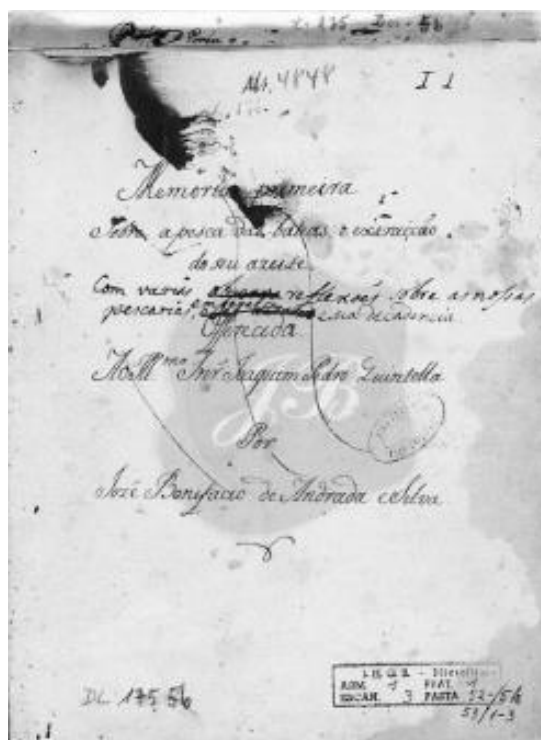 DL 175 Doc. 56
Ms. 4848 I 1
Memoria primeira
Sobre a pesca das baleas e extraicção
do seu azeite
Com varias reflexoēs sobre as nossas
pescarias
Offerecida
Ao Ill.mo Snr. Joaquim Pedro Quintella
Por
Jozé Bonifacio de Andrada e Silva
JB
DL 175 56
I.H.G.B.
ARM. 1 PRAT. 1
ESCAN. 3 PASTA 52-/56
53/1-3